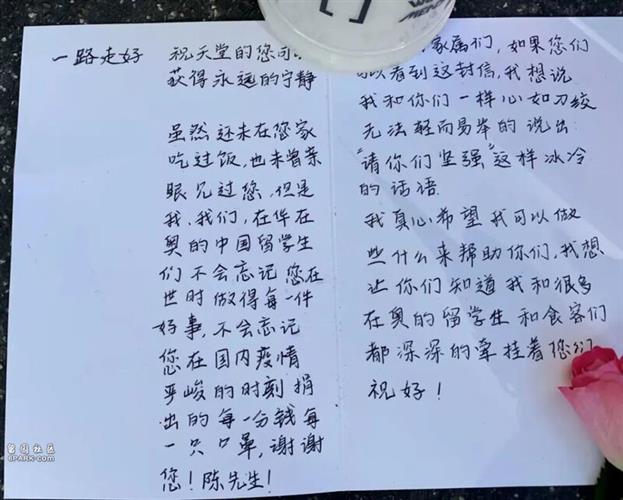 一路走好
祝天堂的您可
获得永远的宁静
虽然还未在您家
吃过饭,也未曾亲
眼见过您,但是
我、我们,在华在
奥的中国留学生
们不会忘记您在
世时做得每一件
好事,不会忘记
您在国内疫情
严峻的时刻捐
出的每一分钱每
一只口罩,谢谢
您!陈先生!
家属们,如果您们
以看到这封信,我想说
我和你们一样心如刀绞
无法轻而易举的说出:
“请你们坚强”这样冰冷
的话语.
我真心希望我可以做
些什么来帮助你们,我想
让你们知道我和很多
在奥的留学生和食客们
都深深的牵挂着您们
祝好!
留园社区
6PARK.COM